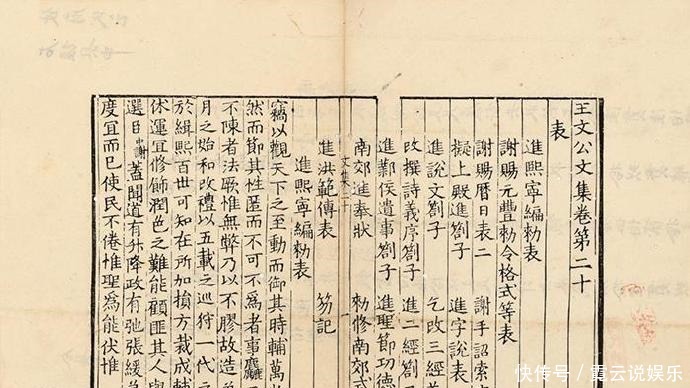 王文公文集卷第二十
表
進熙寧編勑表
謝賜元豐勑令格式等表
謝賜曆日表二 謝手詔索
擬上殿進劄子 進字說表
進說文劄子 乞改三經
改撰詩義序劄子 進二經劄
進鄴侯遺事劄子 進聖節功德
南郊進奉狀 勑修南郊式
二十
進洪範傳表 笏記
進熙寧編勑表
竊以觀天下之至動而御其時輔萬
然而節其性匿而不可不為者事麤
不陳者法厥惟無弊乃以不膠故造
月之始和改禮以五載之巡狩一代
於緝熙百世可知在所加損方裁成輔
休運宜修飾潤色之難能顧匪其人
選臣謝蓋聞道有升降政有弛張緩
度宜而已使民不倦惟聖為能伏惟
快传号/霓云说娱乐